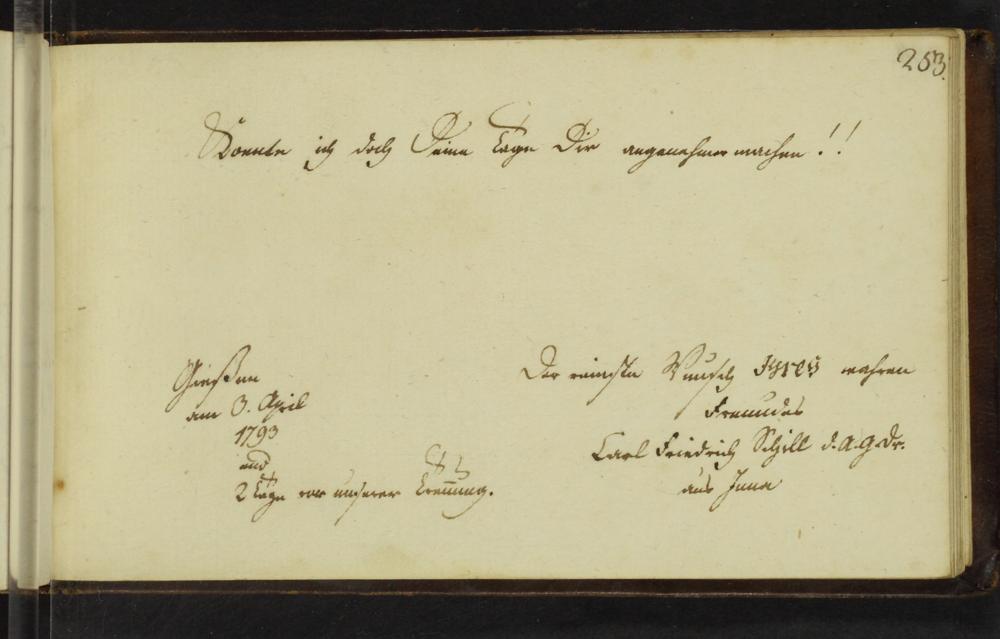 253.
Koente ich doch Deine Tage Dir angenehmer machen!!
Gießen
am 3. April
1793
und
2 Tage vor unserer Trennung.
Der reinste Wunsch Ihres wahren
Freundes
Carl Friedrich Schill d. A. G. Dr.
aus